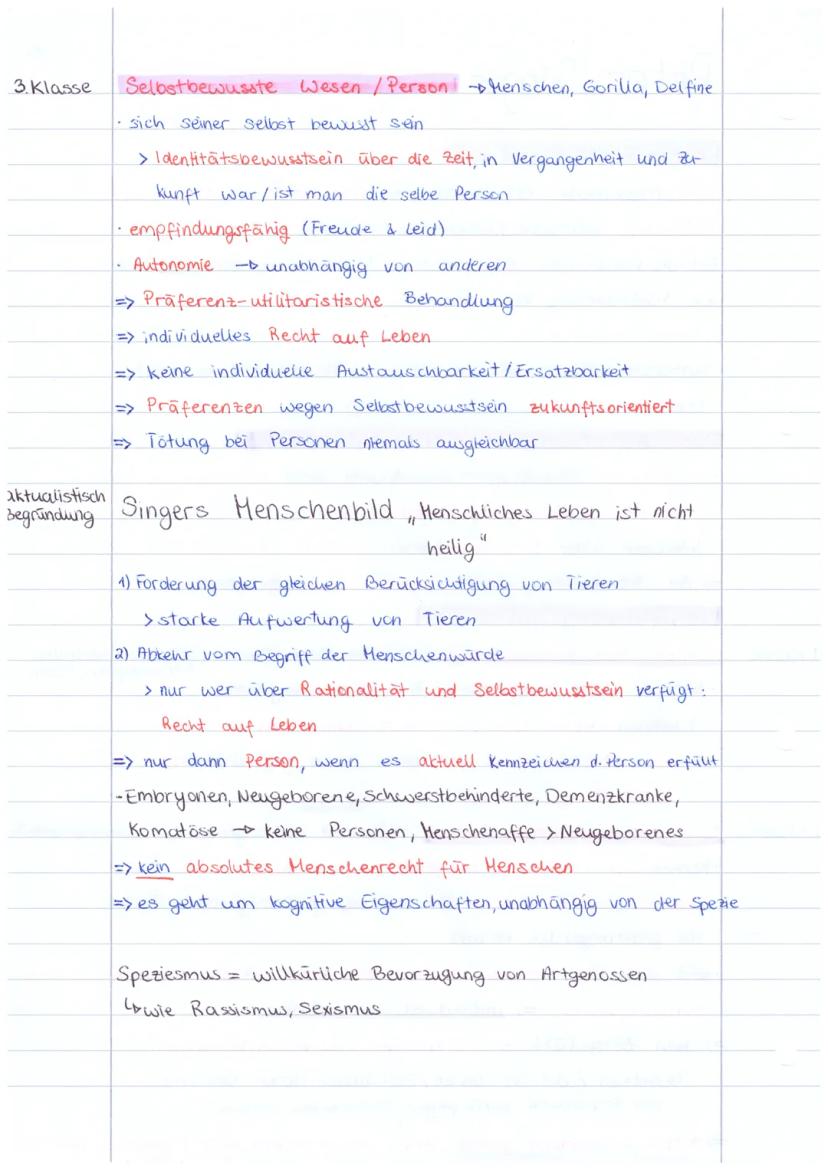 3. Klasse Selbstbewusste Wesen / Person → Menschen, Gorilla, Delfine
· sich seiner selbst bewusst sein
> Identitätsbewusstsein über die Zeit, in Vergangenheit und Zu-
kunft war / ist man die selbe Person
· empfindungsfähig (Freude & Leid)
· Autonomie → unabhängig von anderen
=> Präferenz-utilitaristische Behandlung
=> individuelles Recht auf Leben
=> keine individuelle Austauschbarkeit / Ersatzbarkeit
=> Präferenzen wegen Selbstbewusstsein zukunftsorientiert
=> Tötung bei Personen niemals ausgleichbar
aktualistisch
Begründung
Singers Menschenbild „Menschliches Leben ist nicht
heilig“
1) Forderung der gleichen Berücksichtigung von Tieren
> starke Aufwertung von Tieren
2) Abkehr vom Begriff der Menschenwürde
> nur wer über Rationalität und Selbstbewusstsein verfügt:
Recht auf Leben
=> nur dann Person, wenn es aktuell Kennzeichen d. Person erfüllt
- Embryonen, Neugeborene, Schwerstbehinderte, Demenzkranke,
Komatöse → keine Personen, Menschenaffe > Neugeborenes
=> kein absolutes Menschenrecht für Menschen
=> es geht um kognitive Eigenschaften, unabhängig von der Spezie
Speziesmus = willkürliche Bevorzugung von Artgenossen
↳ wie Rassismus, Sexismus